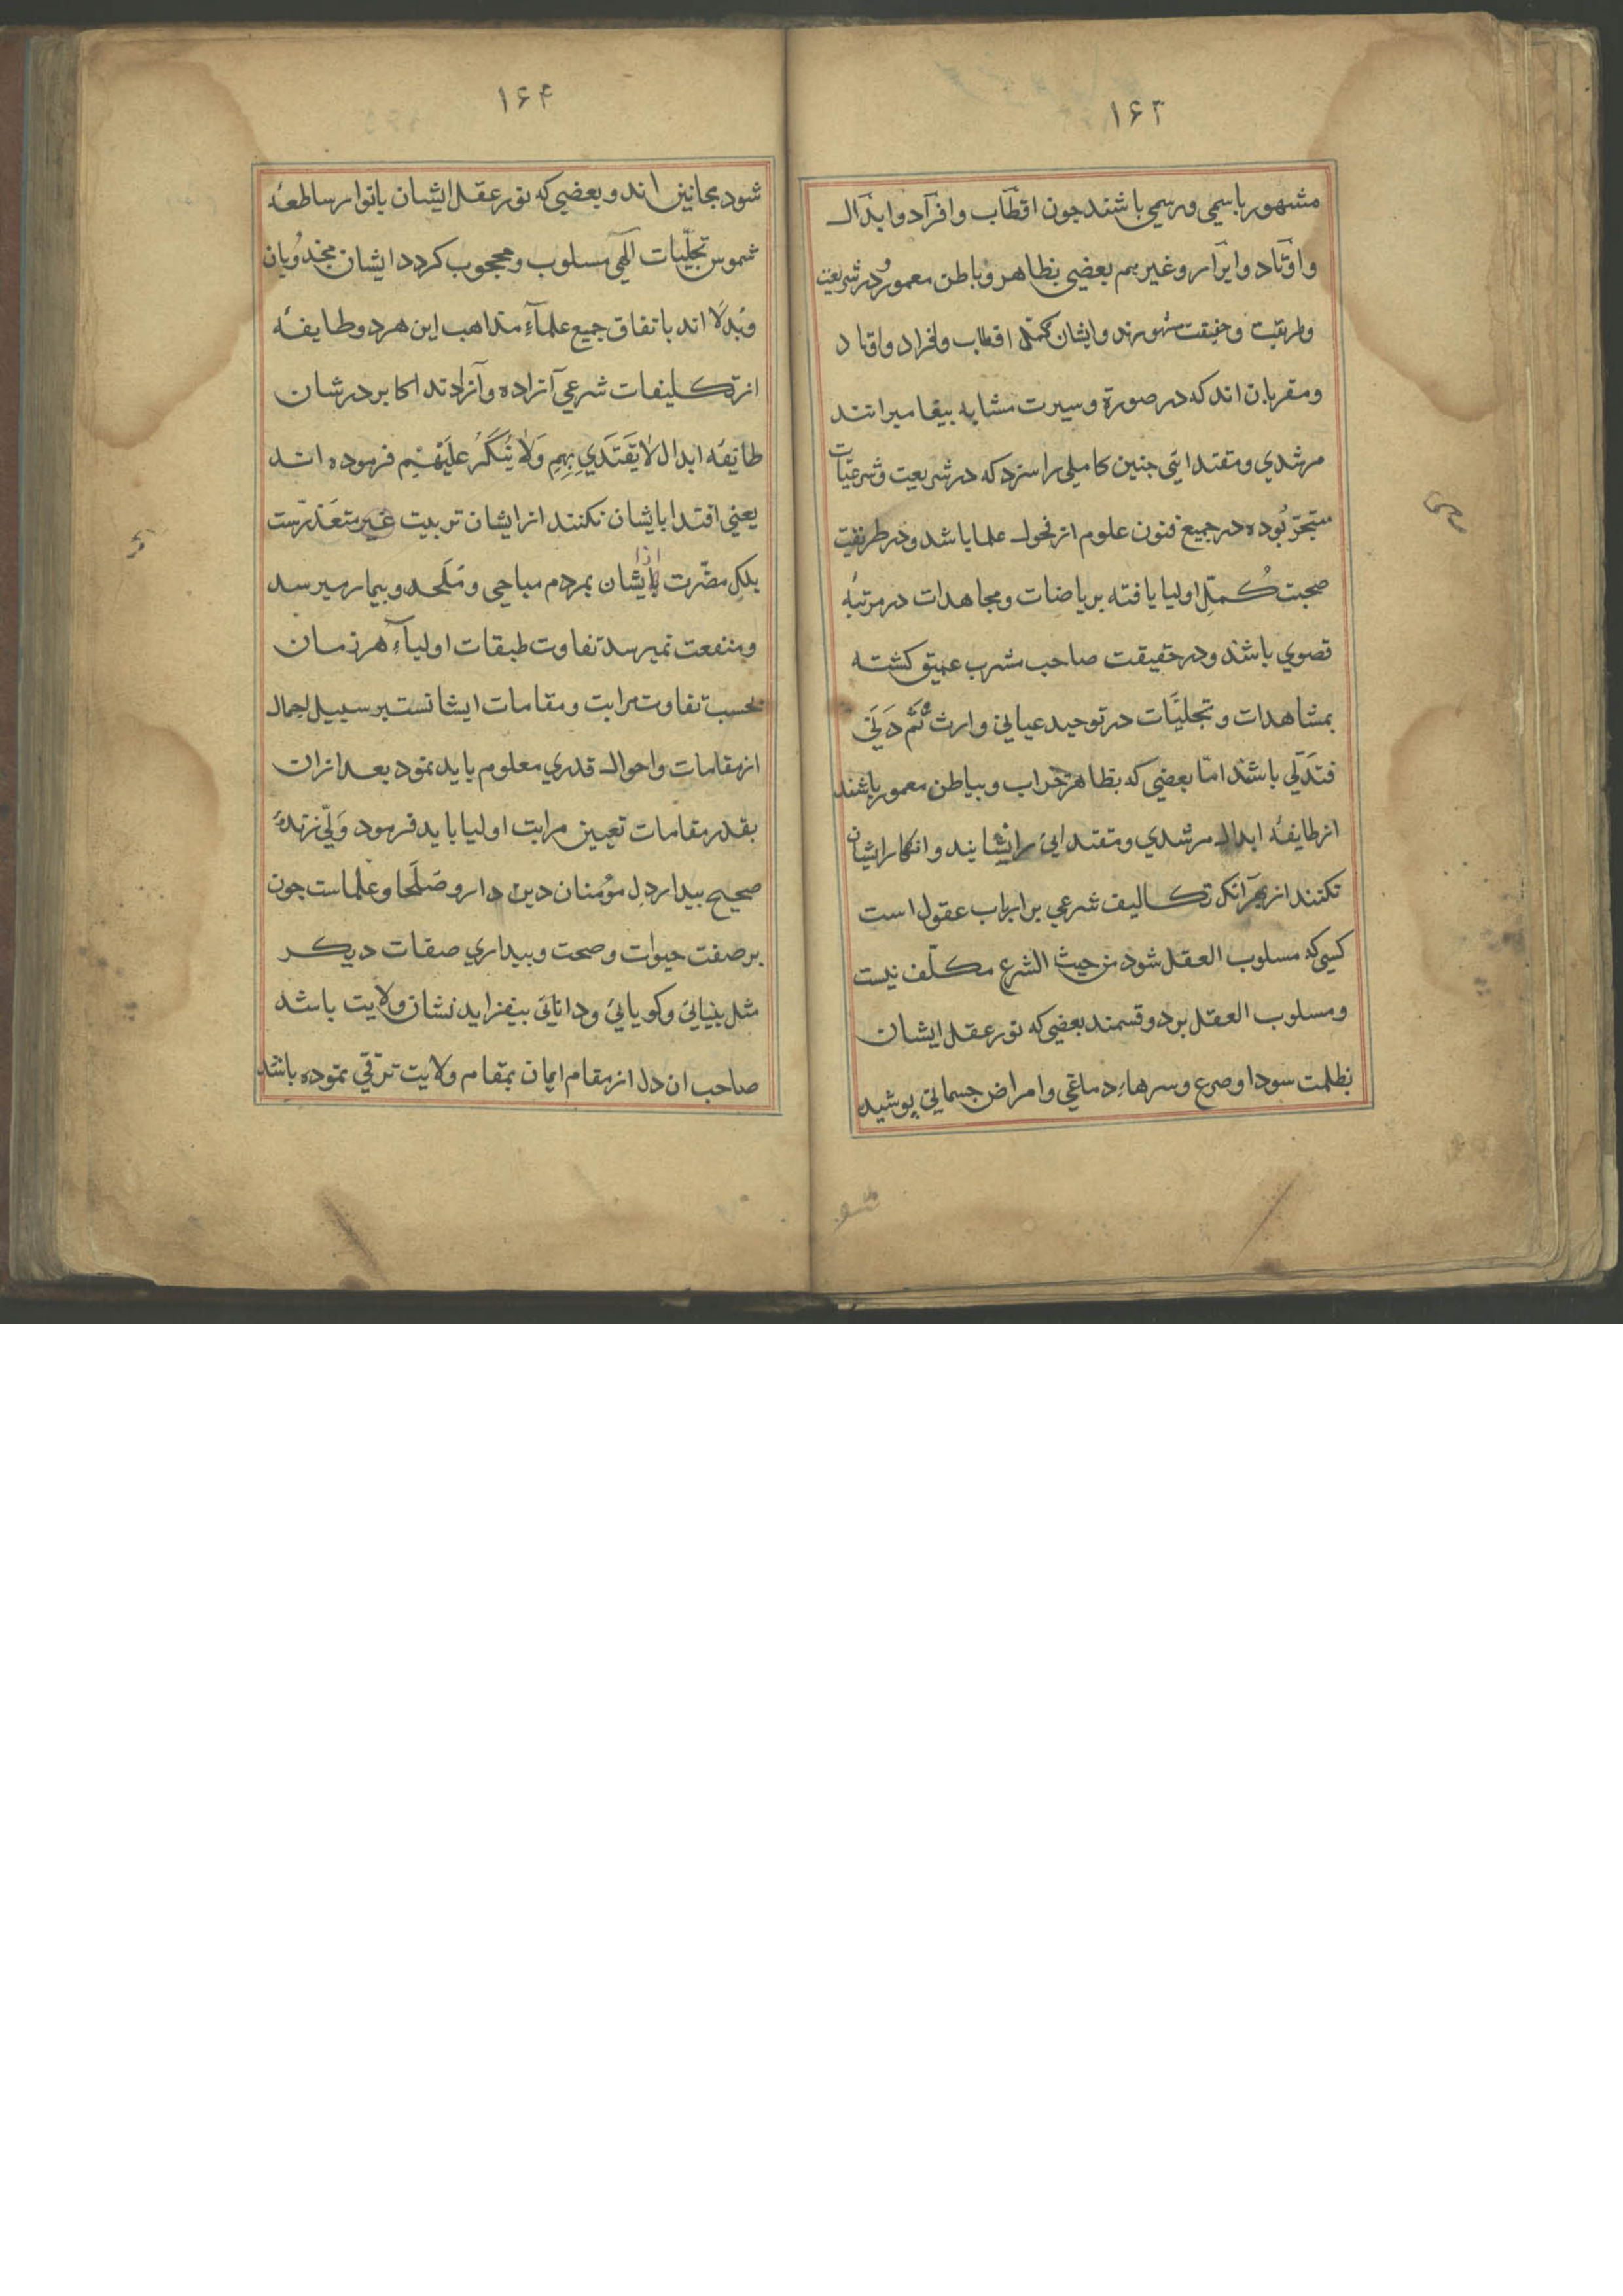 ۱۶۳
مشهور باسمی ورسمی باشند جون اقطاب وافراد وابدال
واوتاد وابرار وغیرهم بعضی بظاهر وباطن معمور ودر شریعت
وطریقت وحقیقت مشهورند وایشان کمّل اقطاب وافراد واوتاد
ومقربان اند که در صورة وسیرت مشابه بیغامبرانند
مرشدي ومقتدایی جنین کاملی را سزد که در شریعت وشرعیّات
متبحّر بُوده در جمیع فنون علوم از فحول علما باشد ودر طریقت
صحبت کُمّلِ اولیا یافته بریاضات ومجاهدات در مرتبهٔ
قصوي باشد ودر حقیقت صاحب مشرب عمیق کشته
بمشاهدات وتجلیّات در توحید عیانی وارث ثُمَّ دَنَي
فَتَدَلّي باشد امّا بعضی که بظاهر خراب وبباطن معمور باشند
از طایفهٔ ابدال مرشدي ومقتدایی را نشایند وانکار ایشان
نکنند از بهر آنکه تکالیف شرعي بر ارباب عقول است
کسی که مسلوب العقل شود من حیث الشرع مکلّف نیست
ومسلوب العقل بر دو قسمند بعضی که نور عقل ایشان
بظلمت سودا وصرع وسرهاءِ دماغي وامراض جسمانی پوشیده
شو
۱۶۴
شود مجانین اند وبعضی که نور عقل ایشان بانوار ساطعهٔ
شموس تجلّیات الهی مسلوب ومحجوب کردد ایشان مجذوبان
وبُدلا اند باتفاق جمیع علمآءِ مذاهب این هر دو طایفه
از تکلیفات شرعي آزاده وآزادند اکابر در شان
طایفهٔ ابدال لا یُقتَدَي بِهِم وَلا یُنکَرُ عَلَیهِم فرموده اند
یعنی اقتدا بایشان نکنند از ایشان تربیت غیر متعذّرست
بلکه مضرّت از ایشان بمردم مباحی ومُلحد وبیمار میرسد
ومنفعت نمیرسد تفاوت طبقات اولیآءِ هر زمان
بحسب تفاوت مراتب ومقامات ایشانست بر سبیل اجمال
از مقامات واحوال قدري معلوم باید نمود بعد ازان
بقدر مقامات تعیین مراتب اولیا باید فرمود وَلّی زندهٔ
صحیح بیدار دلِ مؤمنان دین دار وصُلَحا وعلماست جون
بر صفت حیوات وصحت وبیداري صفات دیکر
مثل بینایی وکویایی ودانایی بیفزاید نشان ولایت باشد
صاحب ان دل از مقام ایمان بمقام ولایت ترقّي نموده باشد